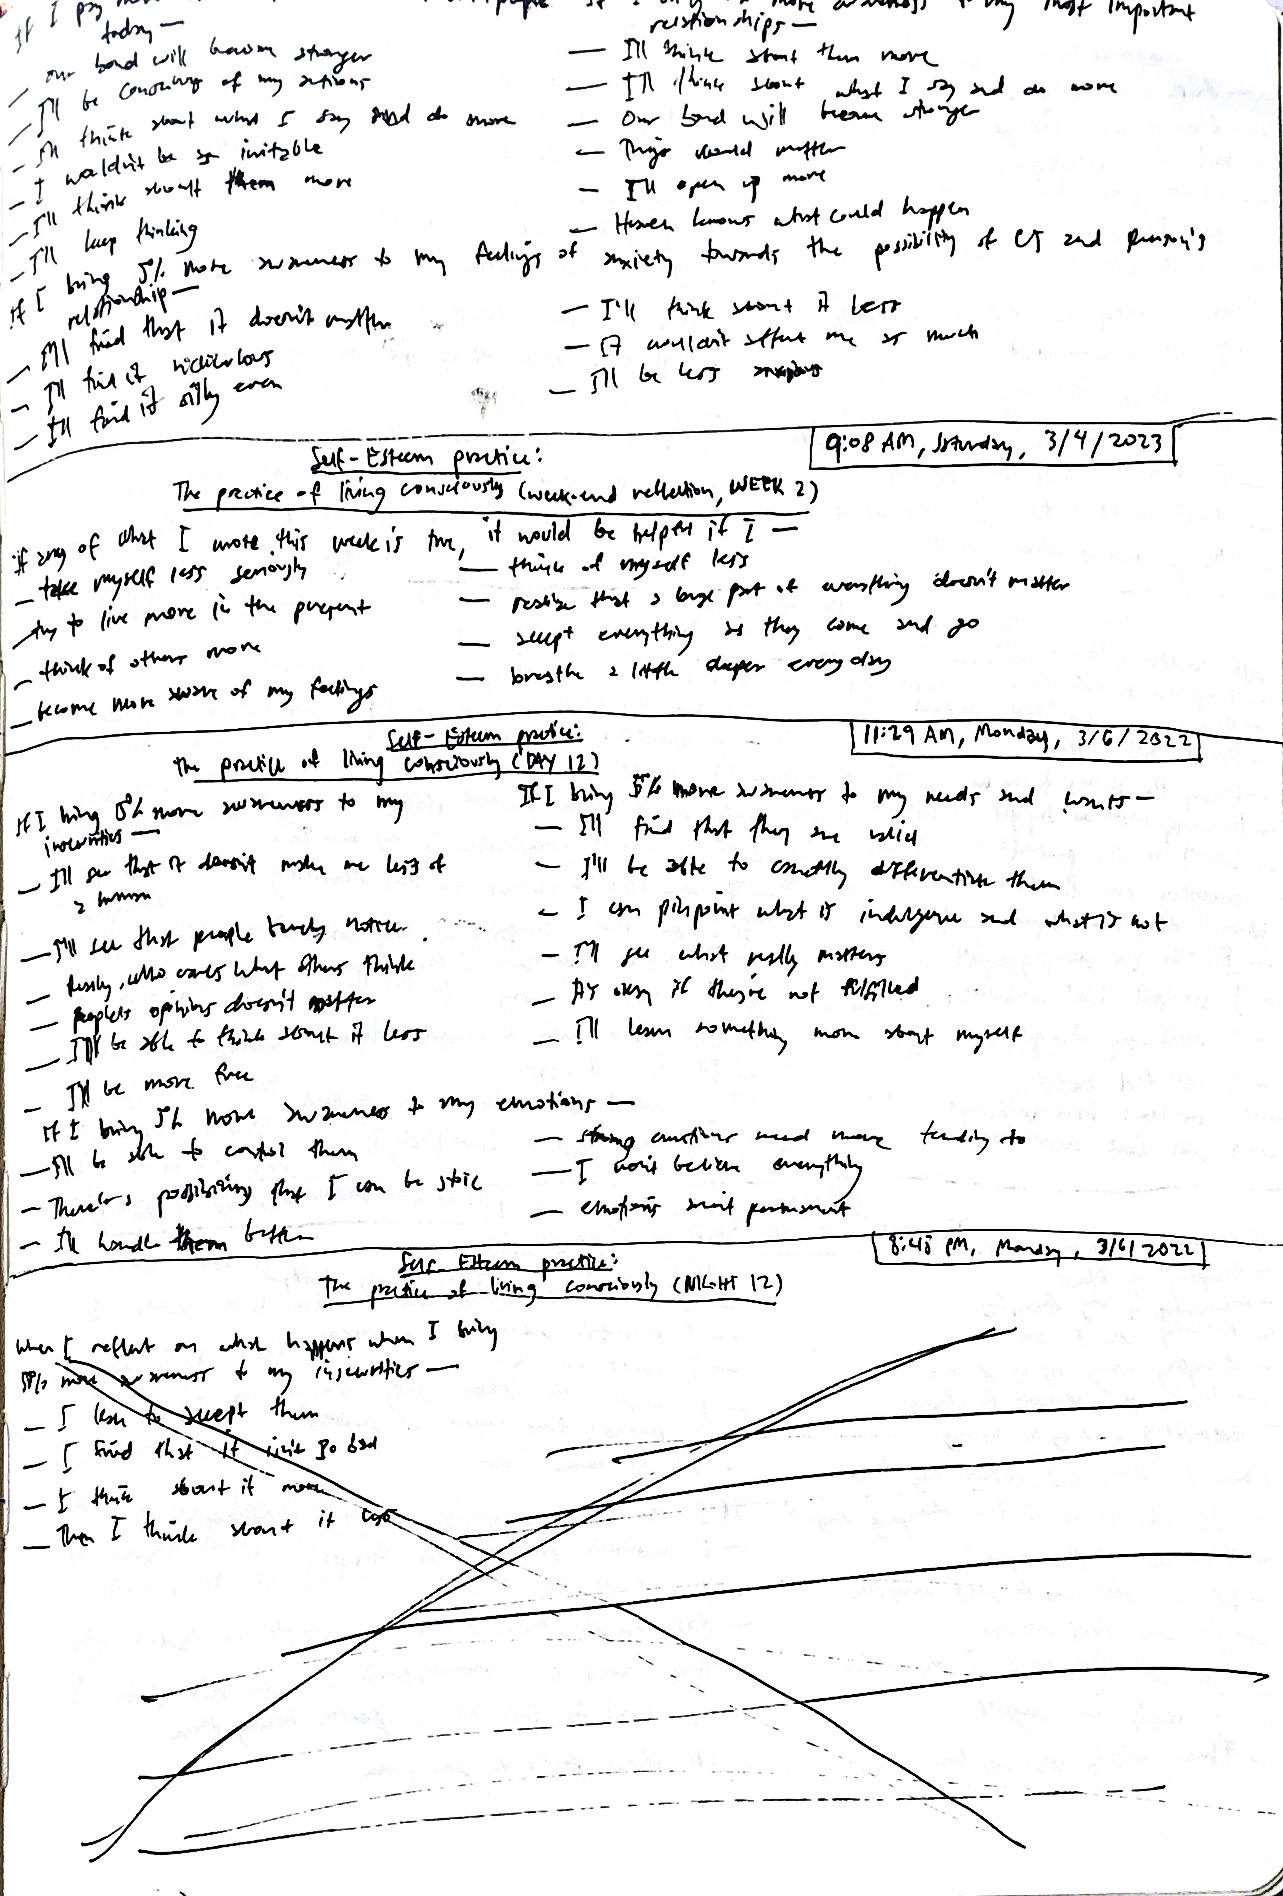 If I pay more
today—
— Our bond will become stronger
— I'll be conscious of my actions
— I'll think about what I say and do more
— I wouldn't be so irritable
— I'll think about them more
— I'll keep thinking
more awareness to my most important
relationships —
— I'll think about them more
— I'll think about what I say and do more
— Our bond will become stronger
— Things would matter
— I'll open up more
— Heaven knows what could happen
If I bring 5% more awareness to my feelings of anxiety towards the possibility of CJ and
relationship —
— I'll find that it doesn't matter
— I'll find it ridiculous
— I'll find it silly even
— I'll think about it less
— It wouldn't affect me as much
— I'll be less anxious
Self-Esteem practice:
9:08 AM, Saturday, 3/4/2023
The practice of living consciously (week-end reflection, WEEK 2)
if any of what I wrote this week is true, it would be helpful if I —
— take myself less seriously
— try to live more in the present
— think of others more
— become more aware of my feelings
— think of myself less
— realize that a large part of everything doesn't matter
— accept everything as they come and go
— breathe a little deeper everyday
Self-Esteem practice:
11:29 AM, Monday, 3/6/2022
The practice of living consciously (DAY 12)
If I bring 5% more awareness to my
insecurities —
— I'll see that it doesn't make me less of
a human
— I'll see that people barely notice
— Really, who cares what others think
— people's opinions doesn't matter
— I'll be able to think about it less
— I'll be more free
If I bring 5% more awareness to my needs and wants —
— I'll find that they are valid
— I'll be able to differentiate them
— I can pinpoint what is indulgence and what is not
— I'll see what really matters
— It's okay if they're not fulfilled
— I'll learn something more about myself
If I bring 5% more awareness to my emotions —
— I'll be able to control them
— There's a possibility that I can be stoic
— I'll handle them better
— strong emotions need more tending to
— I won't believe everything
— emotions aren't permanent
Self-Esteem practice:
8:48 PM, Monday, 3/6/2022
The practice of living consciously (NIGHT 12)
When I reflect on what happens when I bring
5% more awareness to my insecurities —
— I learn to accept them
— I find that it isn't so bad
— I think about it more
— Then I think about it less